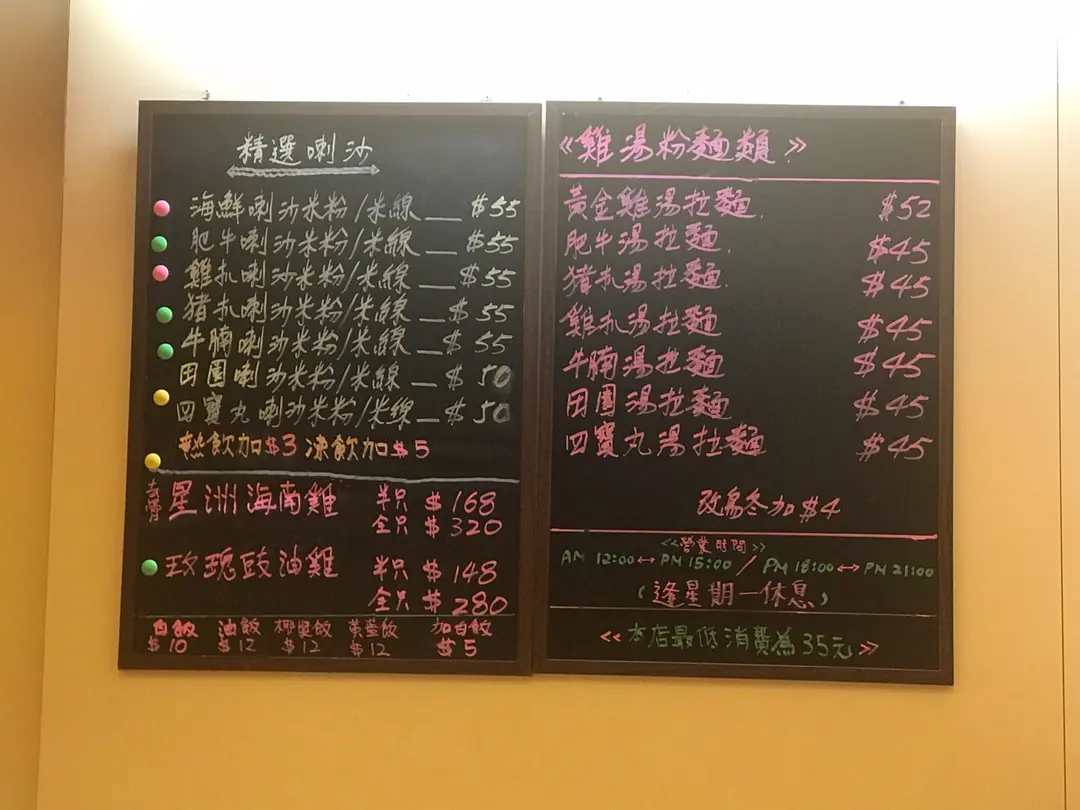 精選喇沙
海鮮喇沙米粉/米線 — $55
肥牛喇沙米粉/米線 — $55
雞扒喇沙米粉/米線 — $55
猪扒喇沙米粉/米線 — $55
牛腩喇沙米粉/米線 — $55
田園喇沙米粉/米線 — $50
四寶丸喇沙米粉/米線 — $50
熱飲加$3 凍飲加$5
星洲海南雞 半只 $168
全只 $320
玫瑰豉油雞 半只 $148
全只 $280
白飯 油飯 椰漿飯 黃薑飯 加白飯
$10 $12 $12 $12 $5
《雞湯粉麵類》
黃金雞湯拉麵 $52
肥牛湯拉麵 $45
猪扒湯拉麵 $45
雞扒湯拉麵 $45
牛腩湯拉麵 $45
田園湯拉麵 $45
四寶丸湯拉麵 $45
改烏冬加$4
<<營業時間>>
AM 12:00↔PM 15:00 / PM 18:00↔PM 21:00
(逢星期一休息)
<<本店最低消費為35元>>